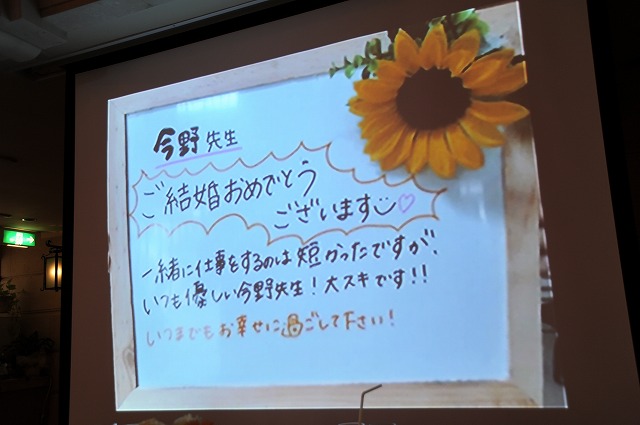 今野先生
ご結婚おめでとう
ございます
一緒に仕事をするのは短かったですが、
いつも優しい今野先生！大スキです！！
いつまでもお幸せに過ごして下さい！